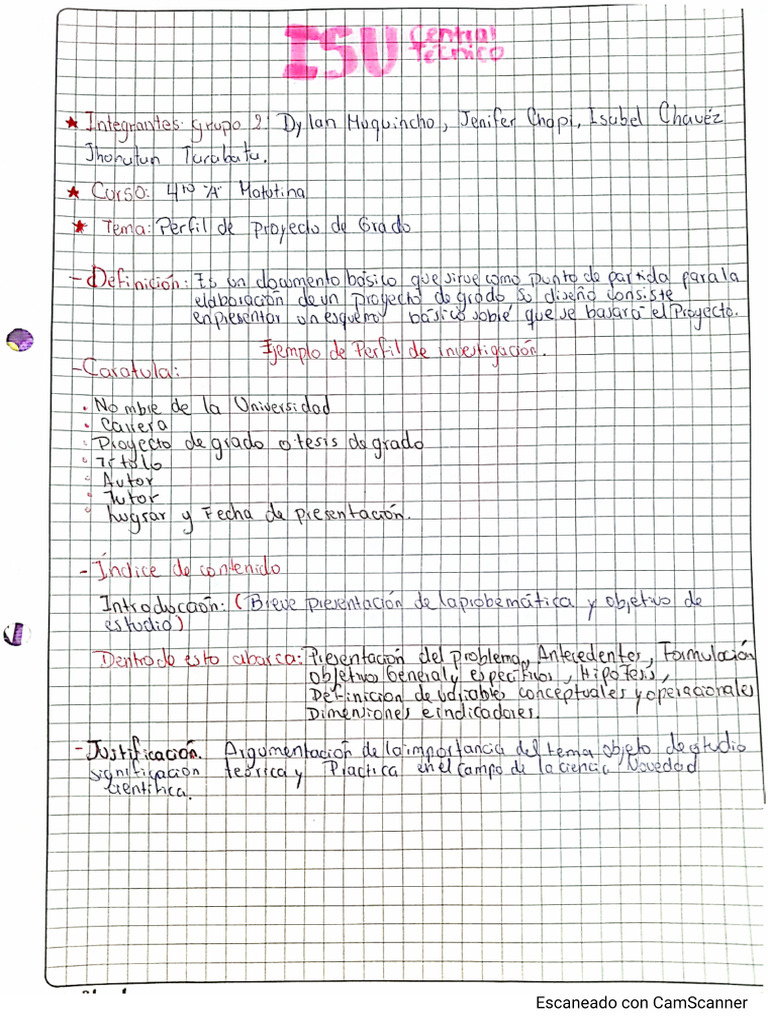 ISU Central Técnico
★ Integrantes grupo 2: Dylan Muquincho, Jenifer Chapi, Isabel Chavéz
Jhonatan Tarabata.
★ Curso: 4to "A" Matutina
★ Tema: Perfil de Proyecto de Grado
- Definición: Es un documento básico que sirve como punto de partida para la
elaboración de un proyecto de grado, su diseño consiste
en presentar un esquema básico sobre que se basará el Proyecto.
Ejemplo de Perfil de investigación.
- Caratula:
• Nombre de la Universidad
• Carrera
• Proyecto de grado o tesis de grado
• Título
• Autor
• Tutor
• Lugsar y Fecha de presentación.
- Índice de contenido
Introducción: (Breve presentación de la probemática y objetivo de
estudio)
Dentro de esto abarca: Presentación del problema, Antecedentes, Formulación
objetivo General y específicos, Hipótesis,
Definición de variables conceptuales y operacionales
Dimensiones e indicadores.
- Justificación. Argumentación de la importancia del tema objeto de estudio
significación teórica y Practica en el campo de la ciencia, Novedad
Científica.
Escaneado con CamScanner